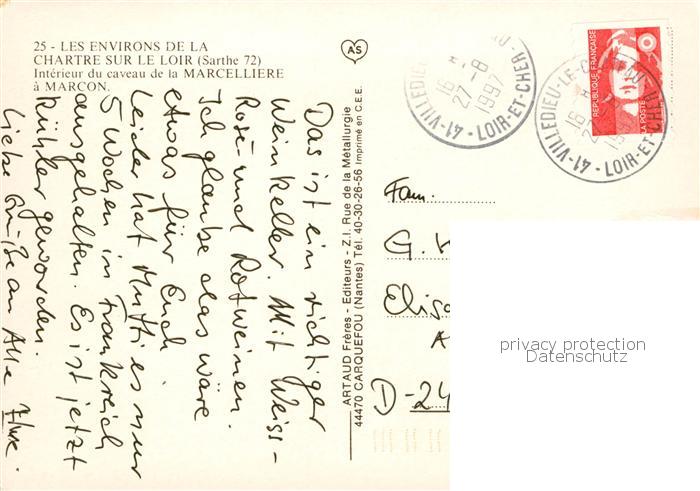 25 - LES ENVIRONS DE LA
CHARTRE SUR LE LOIR (Sarthe 72)
Intérieur du caveau de la MARCELLIERE
à MARCON.
AS
Das ist ein richtiger
Weinkeller. Mit Weiss-
Rose- und Rotweinen.
Ich glaube das wäre
etwas für Euch.
Leider hat Mutti es nur
5 Wochen in Frankreich
ausgehalten. Es ist jetzt
kühler geworden.
Liebe Grüße an Alle
Uwe.
ARTAUD Frères - Editeurs - Z.I. Rue de la Métallurgie
44470 CARQUEFOU (Nantes) Tél. 40-30-26-56 Imprimé en C.E.E.
41-VILLEDIEU
LOIR-ET-CHER
16 H
27-8
1997
REPUBLIQUE FRANÇAISE
LA POSTE
41-VILLEDIEU-LE-C
LOIR-ET-CHER
16 H
Fam.
G.
Elisa
D-24
privacy protection
Datenschutz